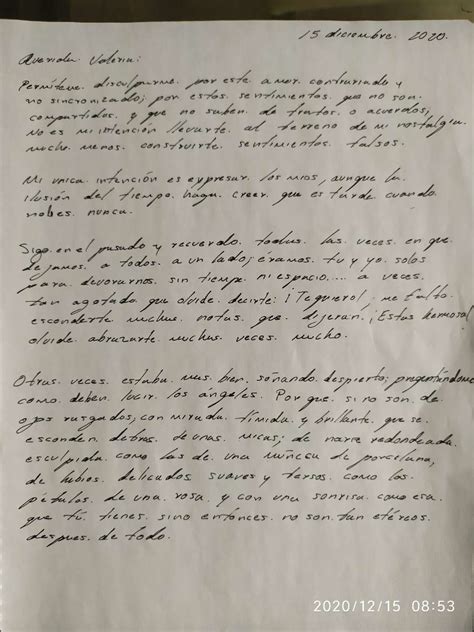 15 diciembre. 2020.
Querida Valeria:
Permiteme disculparme por este amor contrariado y
no sincronizado; por estos sentimientos que no son
compartidos, y que no saben de tratos o acuerdos;
No es mi intención llevarte al terreno de mi nostalgia
mucho menos construirte sentimientos falsos.
Mi unica intención es expresar los mios, aunque la
ilusión del tiempo haga creer que es tarde cuando
no es nunca.
Sigo en el pasado y recuerdo todas las veces en que
dejamos a todos a un lado; eramos tu y yo solos
para devorarnos sin tiempo ni espacio.... a veces
tan agotado que olvide decirte: ¡Te quiero!, me falto
esconderte muchas notas que dijeran ¡Estas hermosa!
olvide abrazarte muchas veces mucho.
Otras veces estaba mas bien soñando despierto; preguntándome
como deben lucir los angeles. Por que si no son de
ojos rasgados; con mirada tímida y brillante que se
esconden detras de unas micas; de nariz redondeada
esculpida como las de una muñeca de porcelana,
de labios delicados suaves y tersos como los
pétalos de una rosa y con una sonrisa como esa
que tú tienes sino entonces no son tan etéreos
despues de todo.
2020/12/15 08:53